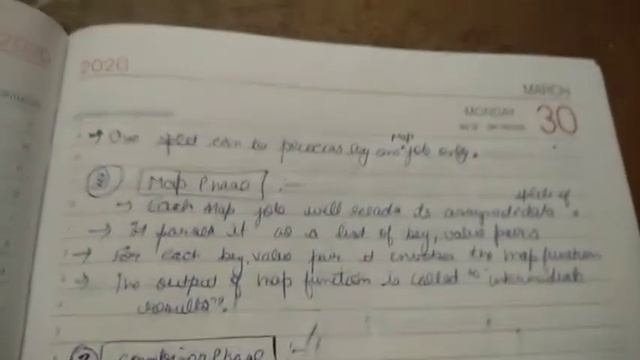 2020
MARCH
MONDAY
30
→ One split can be process by one map job only.
② Map Phase :-
→ Each Map job will reads its assigned splits of data.
→ It parses it as a list of key, value pairs
→ For each key, value pair it invokes the map function
→ The output of map function is called "intermediate
results".
③ Combiner Phase :-